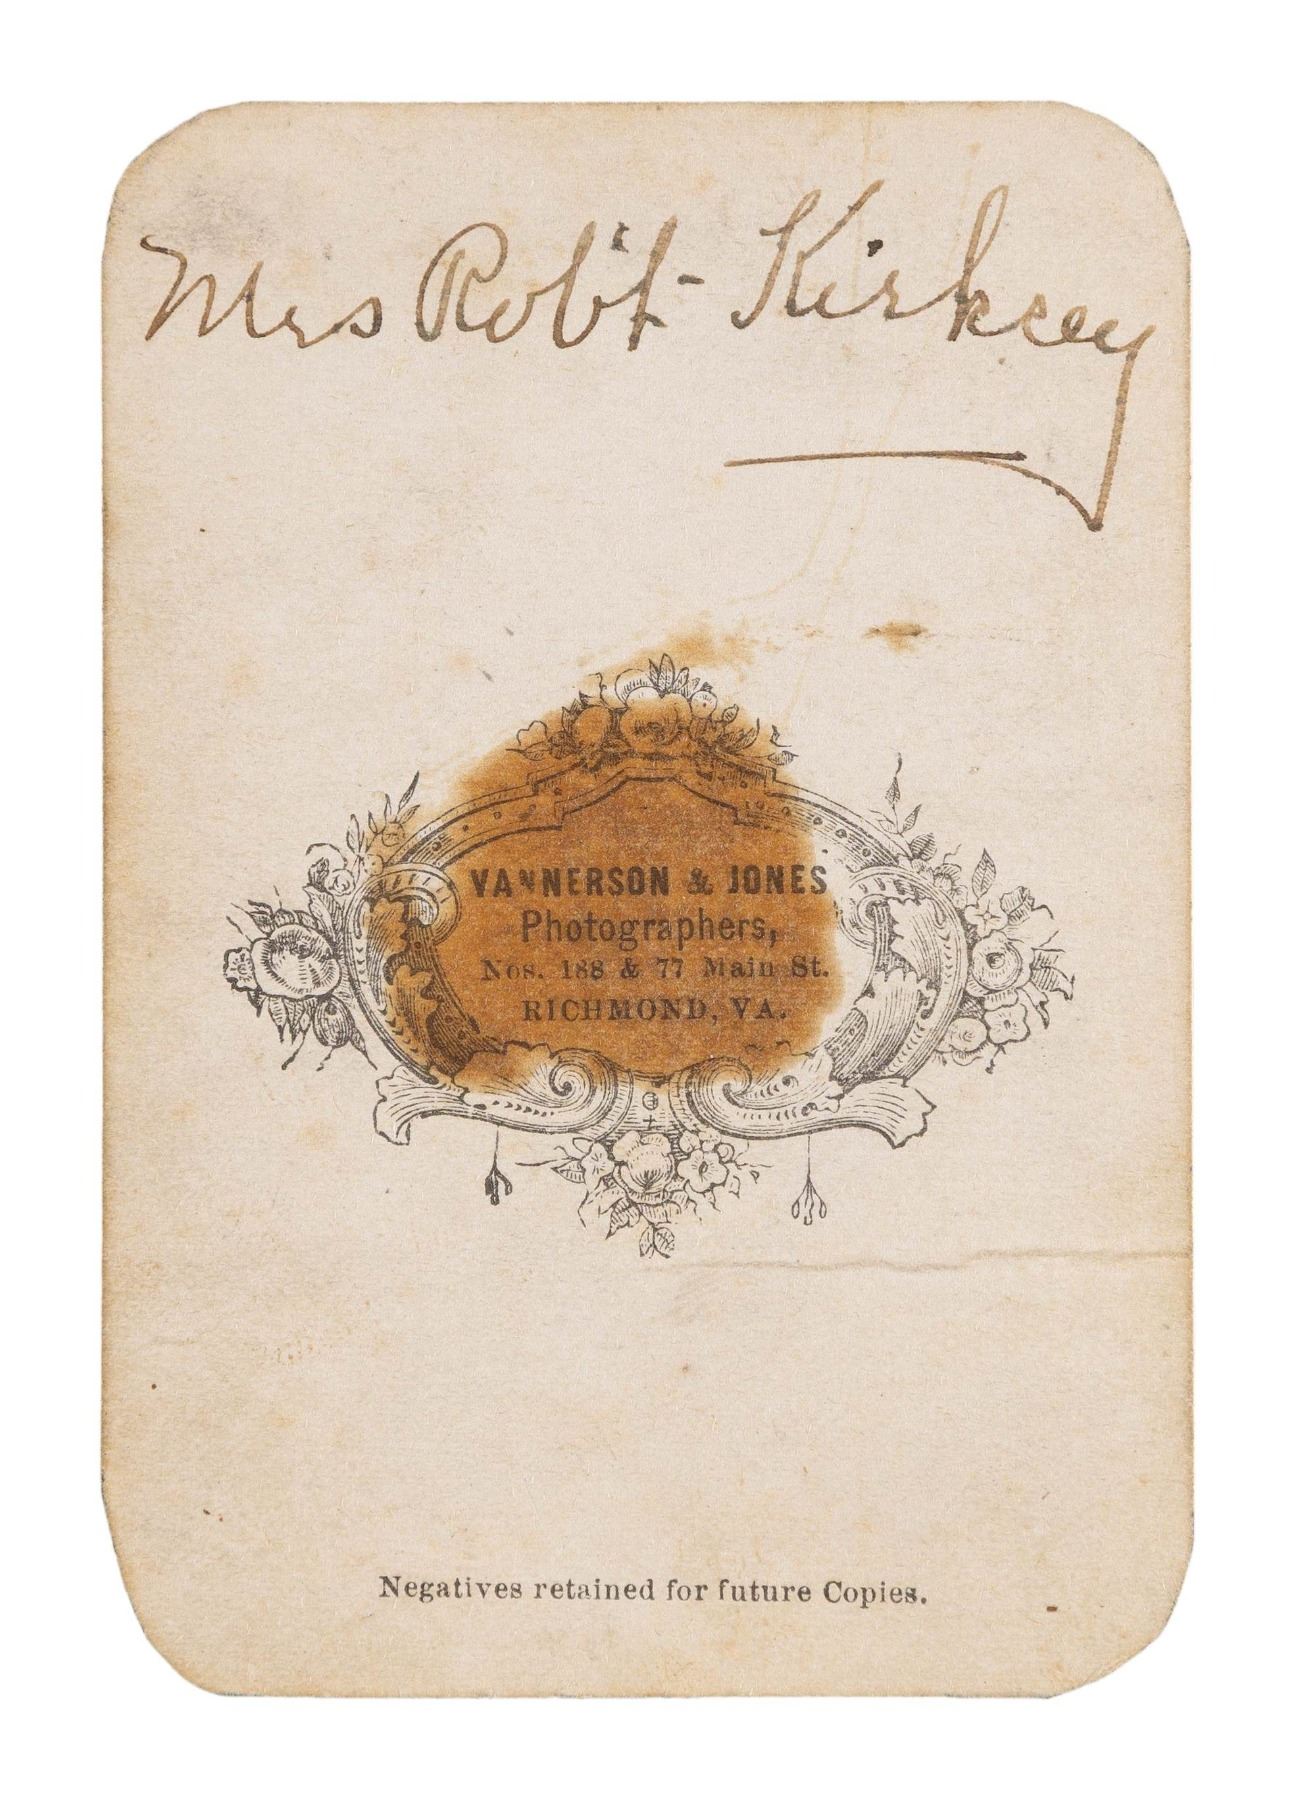 Mrs Rob't Kirksey
VANNERSON & JONES
Photographers,
Nos. 188 & 77 Main St.
RICHMOND, VA.
Negatives retained for future Copies.